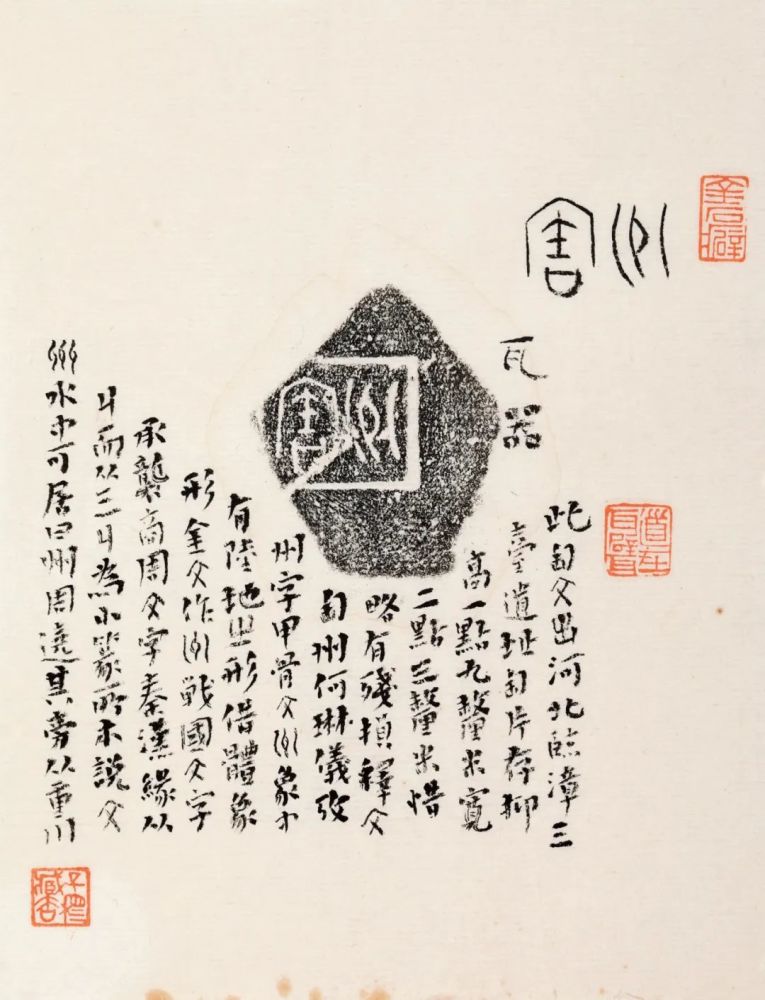 金石癖
州匋
瓦器
道在瓦甓
此匋文出河北臨漳三
臺遺址匋片存抑
高一點九釐米寬
二點三釐米惜
略有殘損釋文
匋州何琳儀攷
州字甲骨文州象中
有陸地之形借體象
形金文作州戰國文字
承襲商周文字秦漢緣从
丩而从三丩為小篆所本說文
州水中可居曰州周遶其旁从重川